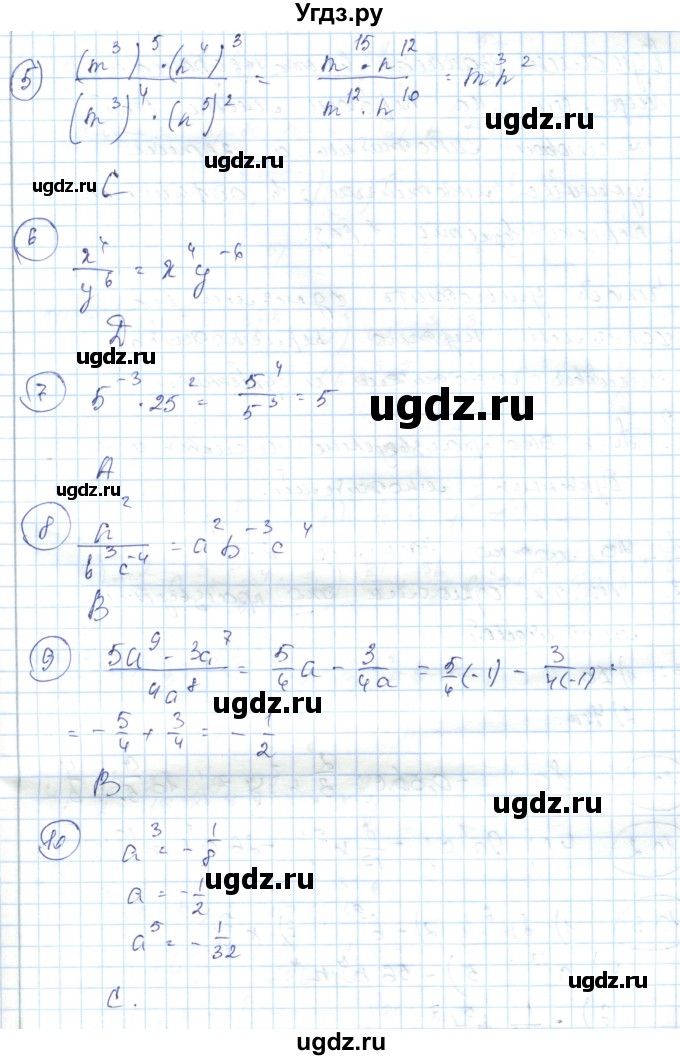 Угдз.ру
5 (m³)⁵·(n⁴)³/(m³)⁴·(n⁵)² = m¹⁵·n¹²/m¹²·n¹⁰ = m³n²
ugdz.ru
ugdz.ru
ugdz.ru
С
6 x⁴/y⁶ = x⁴y⁻⁶
ugdz.ru
Д
ugdz.ru
7 5⁻³·25² = 5⁴/5³ = 5
ugdz.ru
А
ugdz.ru
8 a²/b³c⁻⁴ = a²b⁻³c⁴
ugdz.ru
В
9 5a⁹-3a⁷/4a⁸ = 5/4a - 3/4a = 5/4(-1) - 3/4(-1) =
ugdz.ru
= -5/4 + 3/4 = -1/2
В
ugdz.ru
10 a³ = -1/8
ugdz.ru
a = -1/2
a⁵ = -1/32
ugdz.ru
С.
ugdz.ru